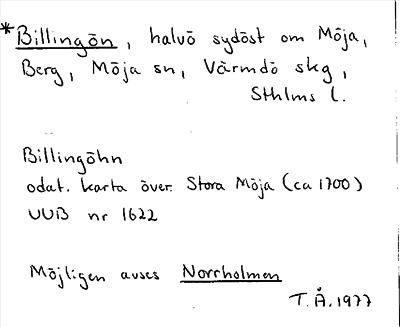 *Billingön, halvö sydöst om Möja,
Berg, Möja sn, Värmdö skg,
Sthlms l.
Billingöhn
odat. karta över Stora Möja (ca 1700)
UUB nr 1622
Möjligen avses Norrholmen
T.Å. 1977